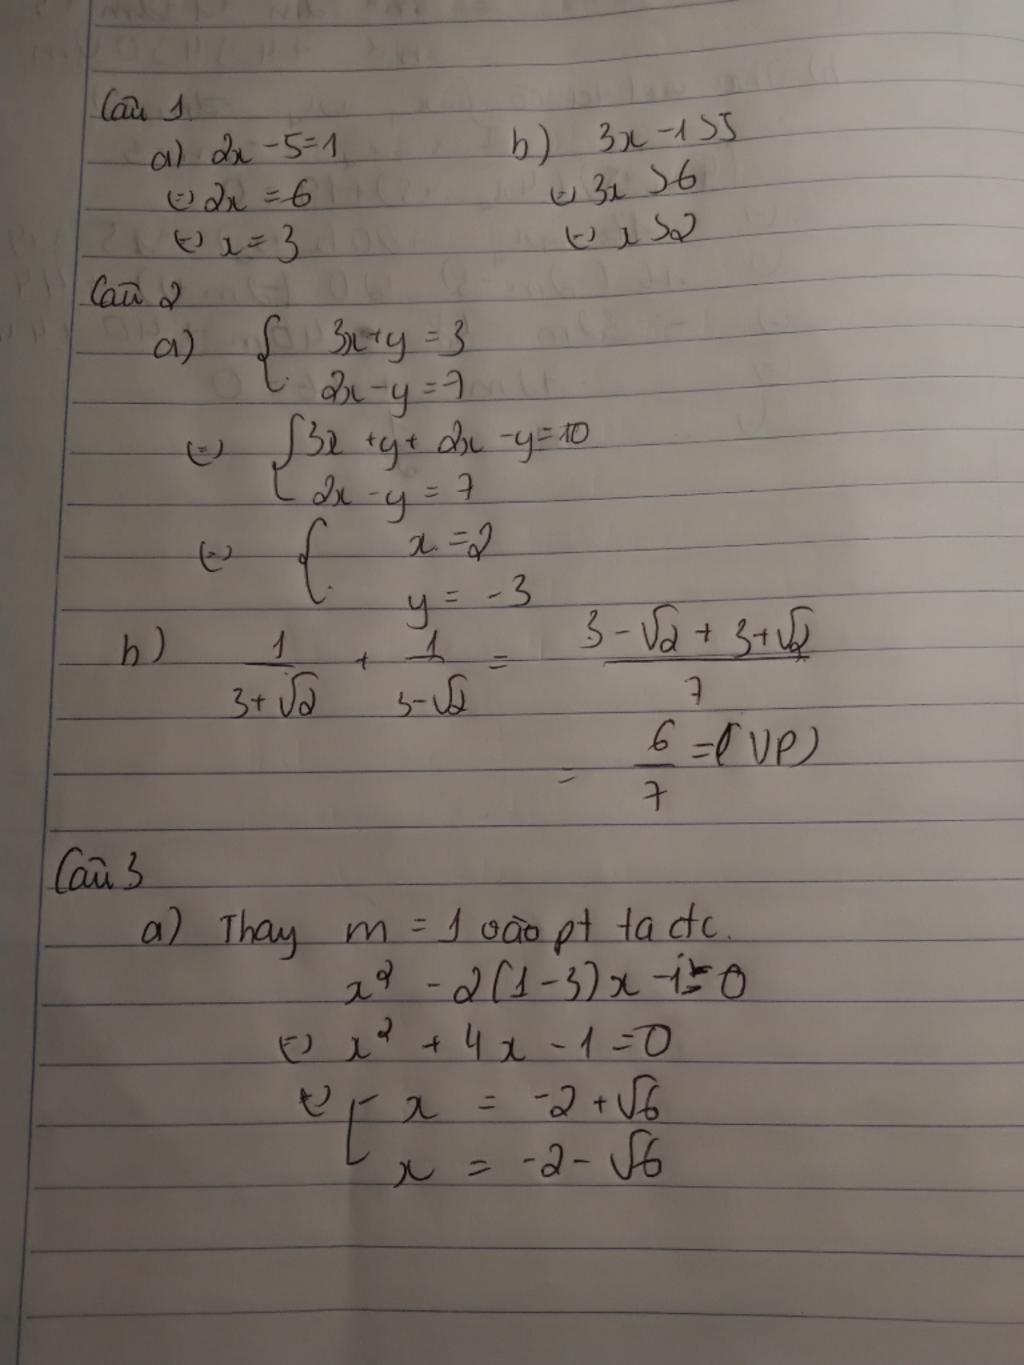 Câu 1
a) 2x - 5 = 1 b) 3x - 1 > 5
⇔ 2x = 6 ⇔ 3x > 6
⇔ x = 3 ⇔ x > 2
Câu 2
a) { 3x + y = 3
2x - y = 7
⇔ { 3x + y + 2x - y = 10
2x - y = 7
⇔ { x = 2
y = -3
b) 1/(3+√2) + 1/(3-√2) = (3 - √2 + 3 + √2)/7
= 6/7 = (VP)
Câu 3
a) Thay m = 1 vào pt ta đc.
x² - 2(1-3)x - 1 = 0
⇔ x² + 4x - 1 = 0
⇔ [ x = -2 + √6
x = -2 - √6